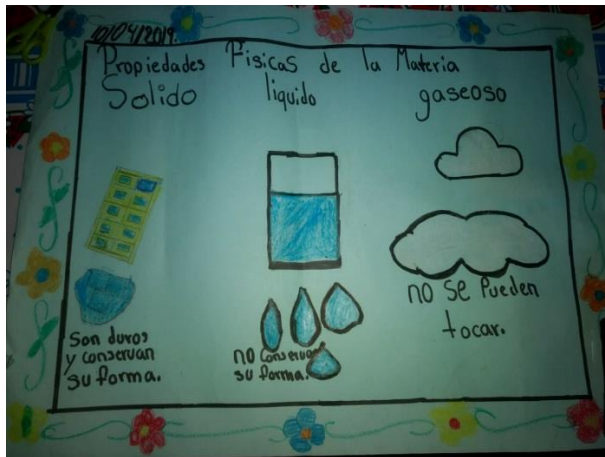 10/04/2019.
Propiedades Fisicas de la Materia
Solido
liquido
gaseoso
Son duros
y conservan
su forma.
no conservan
su forma.
no se Pueden
tocar.